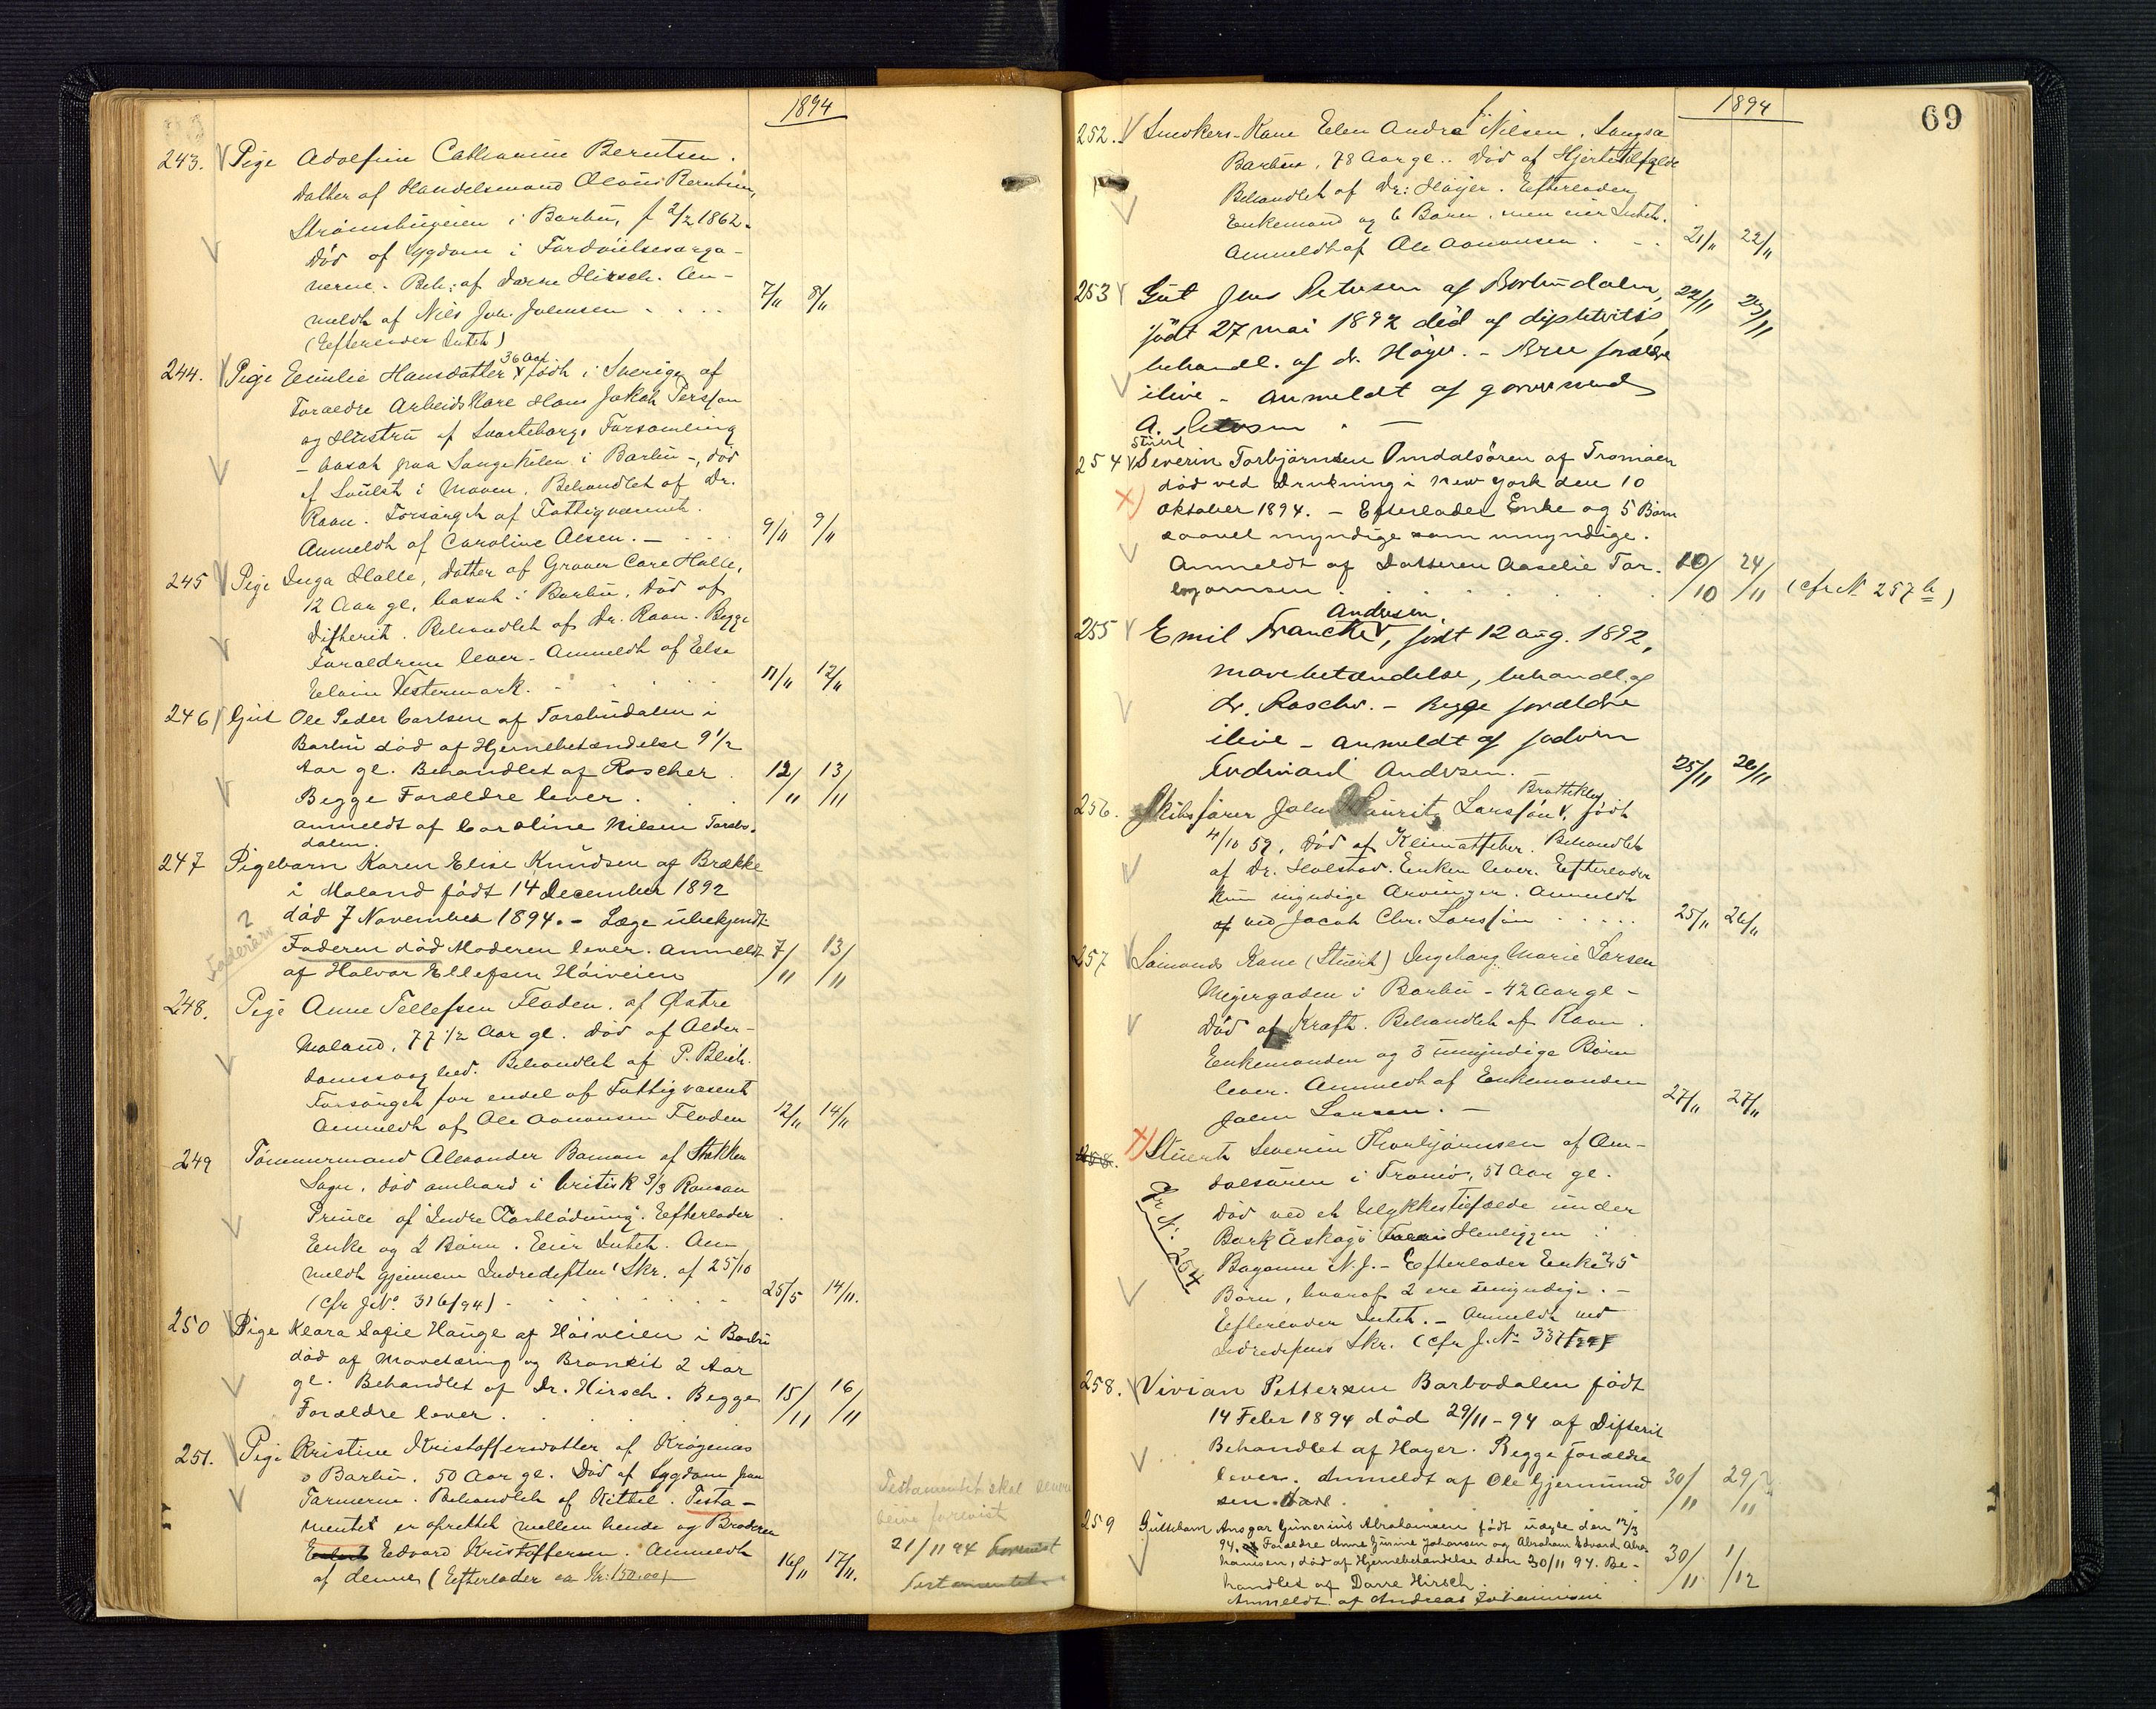 1894
243. Pige Adolfine Cathrine Berntsen.
Datter af Handelsmand Olaus Berntsen,
Strømsbuveien i Barbu, f 2/2 1862.
Død af Sygdom i Fordøielsesorga-
nerne. Beh: af Dr. Hirsch. An-
meldt af Nils Joh. Johnsen . . . . 7/11 8/11
(Efterlader Intet)
244. Pige Emilie Hansdatter 36 Aar født i Sverige af
Foraeldre Arbeidskare Hans Jakob Persson
og Hustru af Svarteborgs Forsamling
- bosat paa Langekilen i Barbu -, død
af Svulst i Maven. Behandlet af Dr.
Raan. Forsørget af Fattigvæsenet.
Anmeldt af Caroline Olsen. - . . . 9/11 9/11
245 Pige Inga Halle, datter af Graver Care Halle,
12 Aar gl, bosat i Barbu. Død af
Difterit. Behandlet af Dr. Raan. Begge
Foraeldrene lever. Anmeldt af Else
Elvine Vestermark. . . . . 11/11 12/11
246 Gut Ole Peder Carlsen af Torsbudalen i
Barbu død af Hjernebetændelse 9 1/2
Aar gl. Behandlet af Roscher. 12/11 13/11
Begge Forældre lever . . .
anmeldt af Caroline Nilsen Torsbo-
dalen.
247 Pigebarn Karen Elise Knudsen af Brække
i Moland født 14 December 1892
død 7 November 1894. - Læge ubekjendt
Faderen død Moderen lever. anmeldt 7/11 13/11
af Halvor Ellefsen Høiveien
? Faderarv
248. Pige Anne Tellefsen Floden. af Østre
Moland, 77 1/2 Aar gl. død af Alder-
domssvaghed. Behandlet af P. Blich.
Forsørget for endel af Fattigvæsenet
Anmeldt af Ole Aanonsen Floden 12/11 14/11
249 Tømmermand Alexander Boman af Stokken
Sogn. død ombord i britisk S/S Roman
Prince af "Indre Forblødning". Efterlader
Enke og 2 Børn. Eier Intet. An-
meldt gjennem Indredeptm' Skr. af 25/10
(cfr J.No. 316/94) . . . . . 25/5 14/11.
250 Pige Klara Sofie Hauge af Høiveien i Barbu
død af Mavetæring og Bronkit 2 Aar
gl. Behandlet af Dr. Hirsch. Begge 15/11 16/11
Forældre lever . . . .
251. Pige Kristine Kristoffersdatter af Krøgenes
i Barbu. 50 Aar gl. Død af Sygdom fra
Tarmerne. Behandlet af Kittel. Testa-
mentet er oprettet mellem hende og Broderen
Edvard Kristoffersen. Anmeldt
af denne (Efterlader ca Kr: 150.00) 16/11 17/11.
Testamentet skal senere
blive forevist
21/11 94 forevist
Testamentet.
1894
69
252. Snedkers-Kone Elen Andrea Nilsen. Langsæ
Barbu, 78 Aar gl.. Død af Hjerteslag
Behandlet af Dr: Høyer. Efterlader
Enkemand og 6 Børn. men eier Intet.
Anmeldt af Ole Aanonsen . - . . 21/11 22/11
253 Gut Jens Petersen af Barbudalen, 22/11 23/11
født 27 mai 1892 død af diphteritis,
behandl. af dr. Høyer. - Begge forældre
ilive - anmeldt af garversvend
A. Petersen . -
254 Stuert Severin Torbjørnsen Omdalsøren af Tromøen
død ved Drukning i New York den 10
oktober 1894. - Efterlader Enke og 5 Børn
saavel myndige som umyndige.
Anmeldt af Datteren Aaselie Tor- 10/10 24/11 (cfr N 257 b)
bjørnsen . . . . . .
255 Emil Francke Andersen, født 12 aug. 1892,
mavebetændelse, behandl. af
dr. Roscher. - Begge forældre
ilive - anmeldt af faderen
Ferdinand Andersen. - 25/11 26/11
256. Skibsfører John Lauritz Larssøn Brattekley, født
4/10 59. død af Klimatfeber. Behandlet
af Dr. Holstad. Enken lever. Efterlader
kun myndige Arvinger. Anmeldt
ved Jacob Chr. Larssøn . . . . . 25/11 26/11
257 Sømands Kone (Stuert) Ingeborg Marie Larsen
Meiergaden i Barbu - 42 Aar gl -
Død af Kræft. Behandlet af Raan.
Enkemanden og 3 umyndige Børn
lever. Anmeldt af Enkemanden
John Larsen. - 27/11 27/11
258. Stuert Severin Thorbjørnsen af Om-
dalsøren i Tromø, 51 Aar gl.
død ved et Ulykkestilfælde under
Bark Askogs Henliggen i
Bayonne N.J. - Efterlader Enke og 5
Børn, hvoraf 2 ere umyndige. -
Efterlader Intet. - Anmeldt ved
Indredeptms Skr. (cfr J.No 337/94)
cfr N: 254
258. Vivian Pettersen Barbodalen født
14 Febr 1894 død 29/11 - 94 af Difterit
Behandlet af Høyer. Begge Forældre
lever. Anmeldt af Ole Gjermund- 30/11 29/11
sen.
259 Guttebarn Ansgar Gunerius Abrahamsen født uægte den 12/3
94. Forældre Anne Gurine Johansen og Abraham Edvard Abra-
hamsen, død af Hjernebetændelse den 30/11 94. Be- 30/11 1/12
handlet af Dr. Hirsch.
Anmeldt af Andreas Johannesen